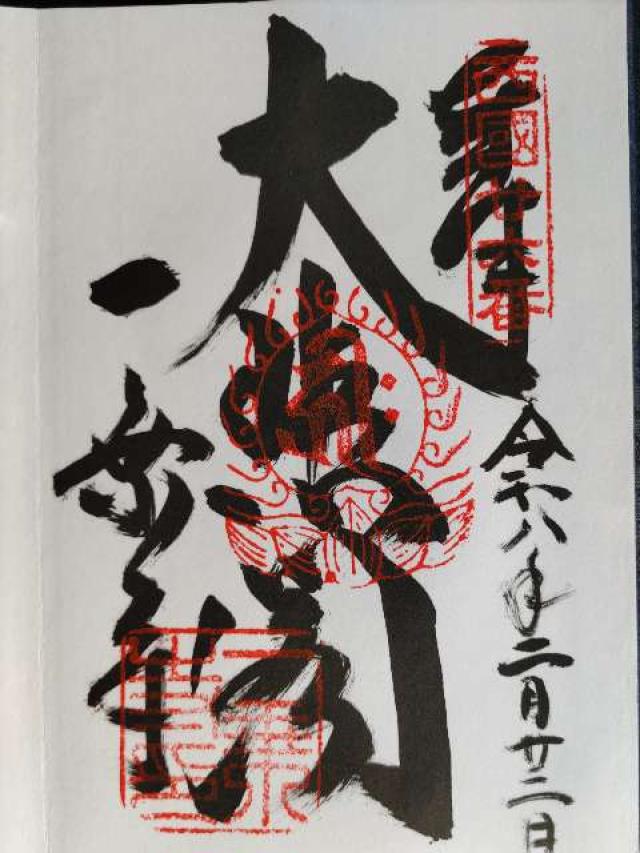 奉拝
西國廿六番
令和八年二月廿二日
大悲閣
一乗寺